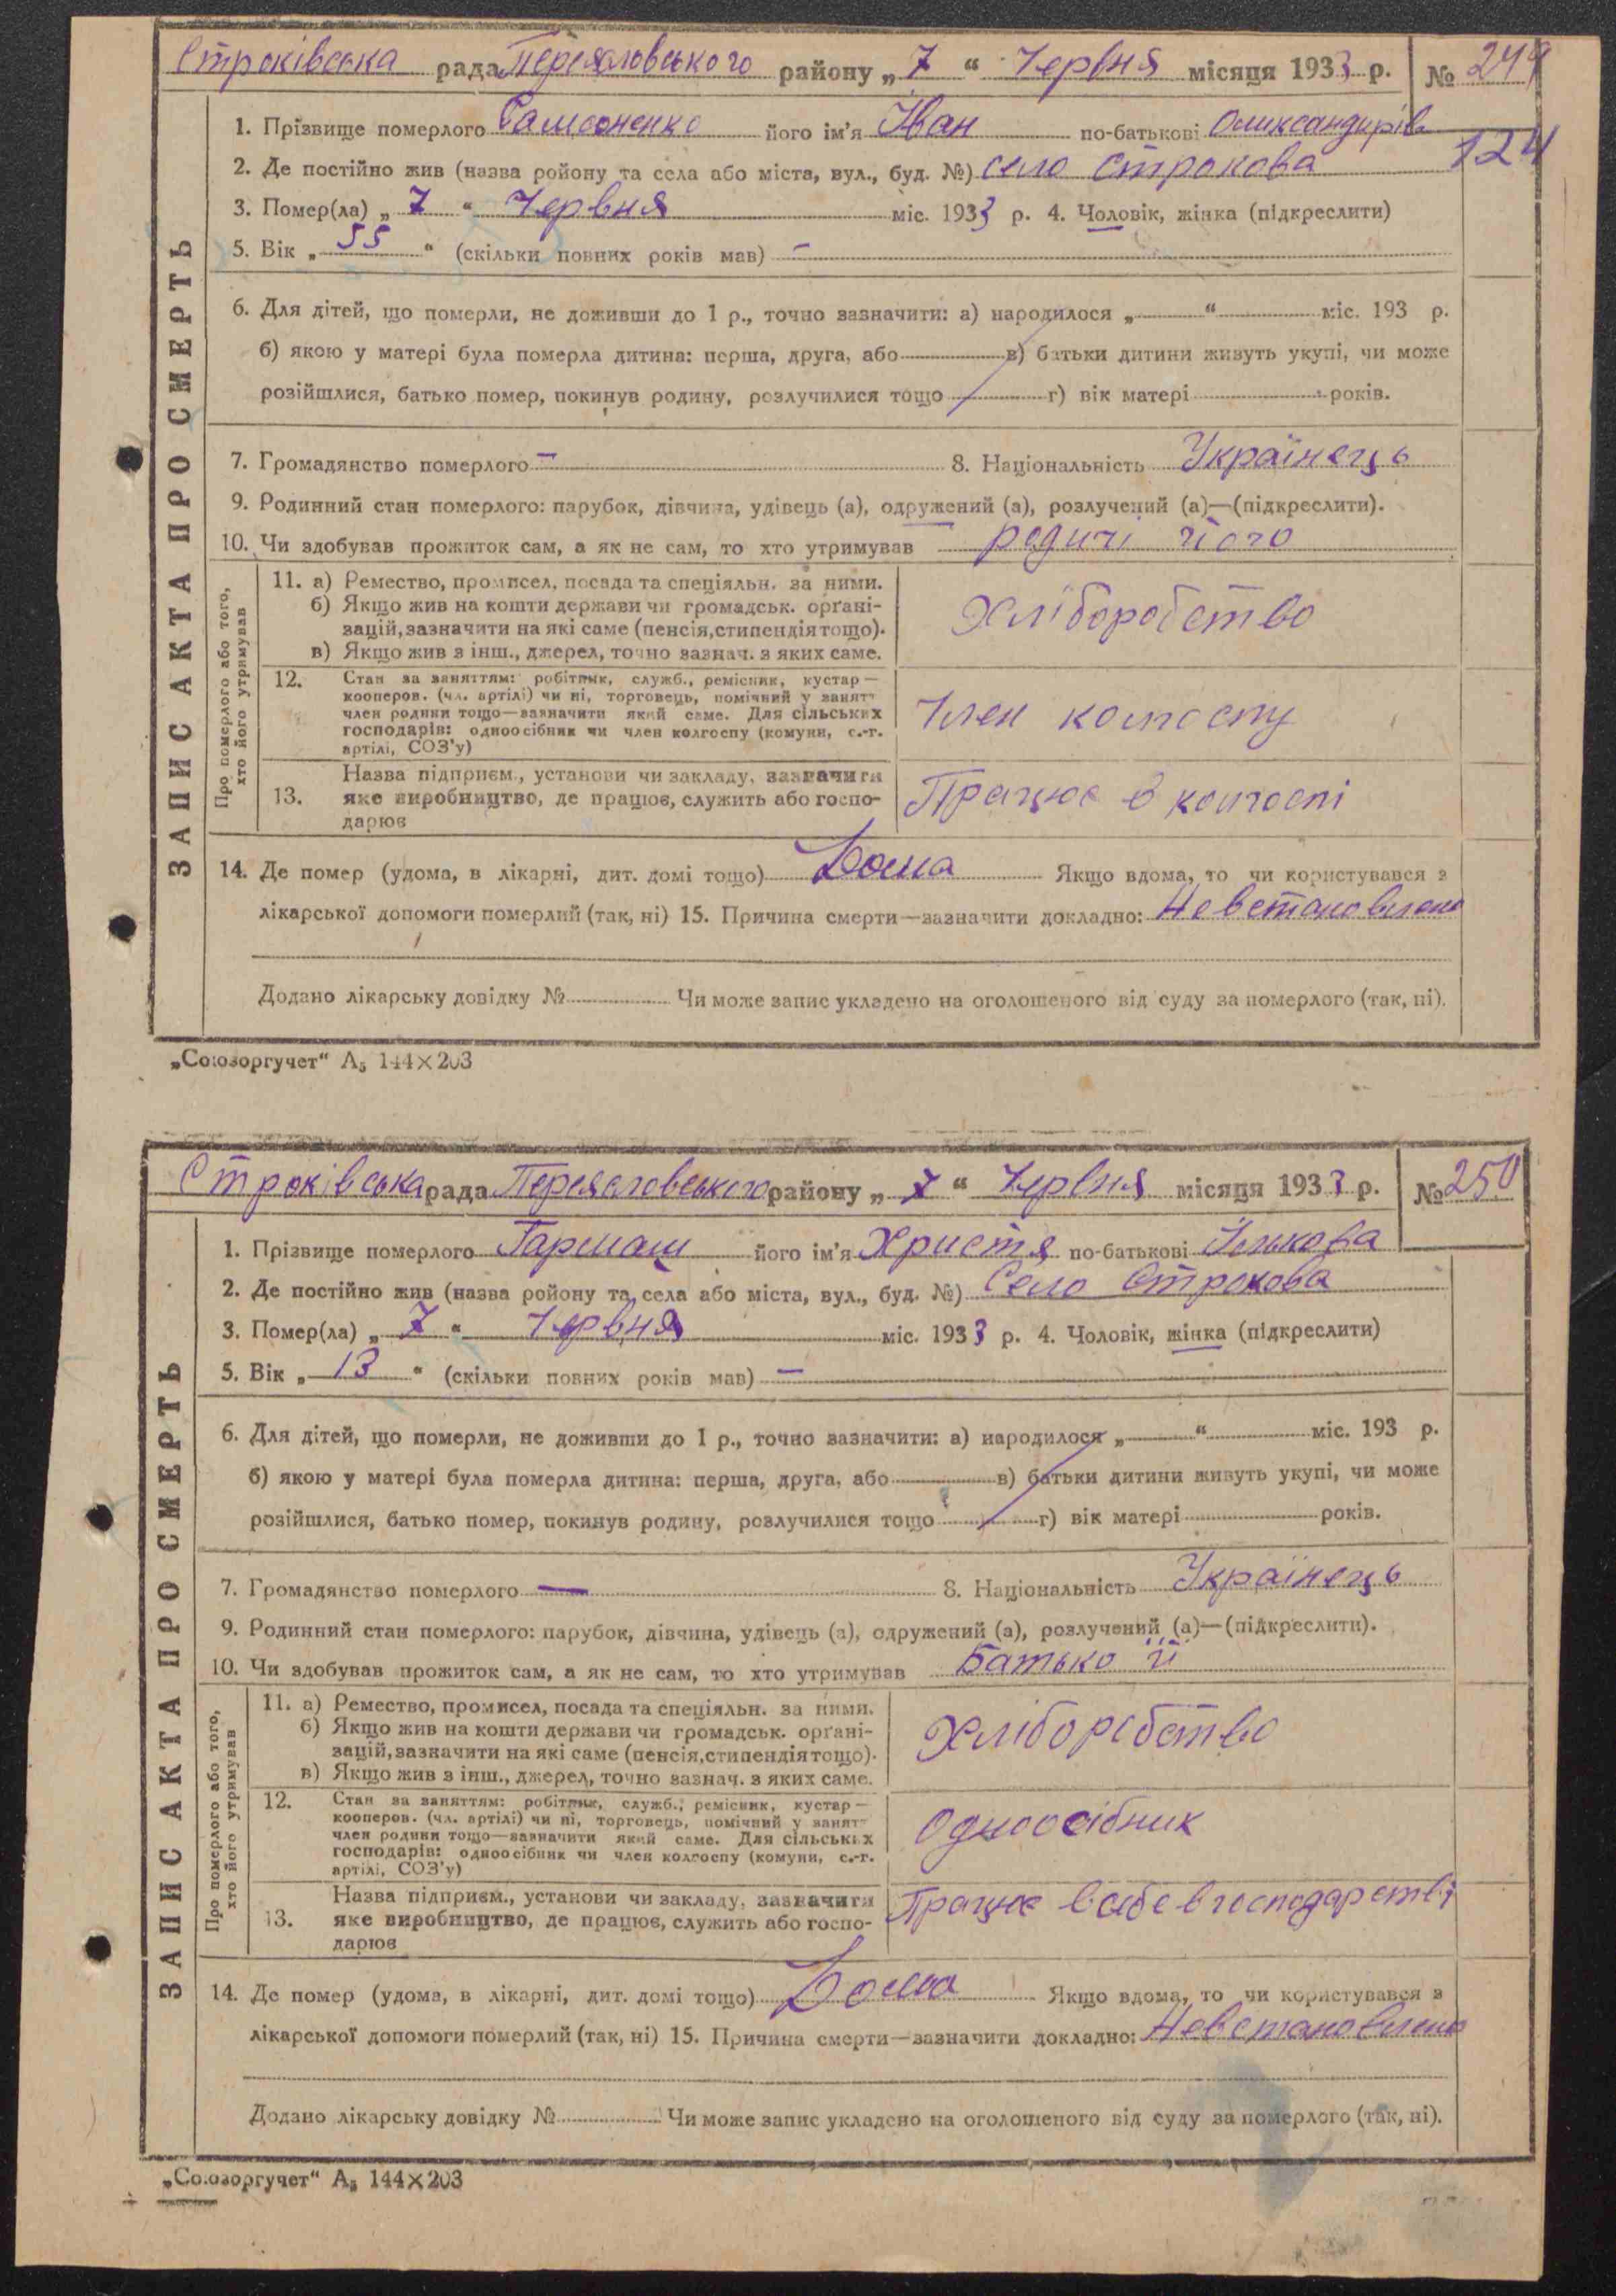 Строківська рада Переяславського району „ 7 “ Червня місяця 1933 р. № 249
1. Прізвище померлого Самсоненко його ім'я Іван по-батькові Олександрів
124
2. Де постійно жив (назва ройону та села або міста, вул., буд. №) село Строкова
3. Помер(ла) „ 7 “ Червня міс. 1933 р. 4. Чоловік, жінка (підкреслити)
5. Вік „ 55 “ (скільки повних років мав) —
6. Для дітей, що померли, не доживши до 1 р., точно зазначити: а) народилося „ “ міс. 193 р.
б) якою у матері була померла дитина: перша, друга, або в) батьки дитини живуть укупі, чи може
розійшлися, батько помер, покинув родину, розлучилися тощо г) вік матері років.
7. Громадянство померлого — 8. Національність Українець
9. Родинний стан померлого: парубок, дівчина, удівець (а), одружений (а), розлучений (а)—(підкреслити).
10. Чи здобував прожиток сам, а як не сам, то хто утримував родичі його
ЗАПИС АКТА ПРО СМЕРТЬ
Про померлого або того,
хто його утримував
11. а) Ремество, промисел, посада та спеціяльн. за ними.
б) Якщо жив на кошти держави чи громадськ. орґані-
зацій, зазначити на які саме (пенсія, стипендія тощо).
в) Якщо жив з інш., джерел, точно зазнач. з яких саме.
Хліборобство
12. Стан за заняттям: робітник, служб., ремісник, кустар—
кооперов. (чл. артілі) чи ні, торговець, помічний у занятт
член родини тощо—зазначити який саме. Для сільських
господарів: одноосібник чи член колгоспу (комуни, с.-г.
артілі, СОЗ'у)
Член колгоспу
Назва підприєм., установи чи закладу, зазначити
13. яке виробництво, де працює, служить або госпо-
дарює
Працює в колгоспі
14. Де помер (удома, в лікарні, дит. домі тощо) Дома Якщо вдома, то чи користувався з
лікарської допомоги померлий (так, ні) 15. Причина смерти—зазначити докладно: Невстановлено
Додано лікарську довідку № Чи може запис укладено на оголошеного від суду за померлого (так, ні).
„Союзоргучет“ А5 144×203
Строківська рада Переяславського району „ 7 “ Червня місяця 1933 р. № 250
1. Прізвище померлого Гармаш його ім'я Христя по-батькові Ількова
2. Де постійно жив (назва ройону та села або міста, вул., буд. №) Село Строкова
3. Помер(ла) „ 7 “ Червня міс. 1933 р. 4. Чоловік, жінка (підкреслити)
5. Вік „ 13 “ (скільки повних років мав) —
6. Для дітей, що померли, не доживши до 1 р., точно зазначити: а) народилося „ “ міс. 193 р.
б) якою у матері була померла дитина: перша, друга, або в) батьки дитини живуть укупі, чи може
розійшлися, батько помер, покинув родину, розлучилися тощо г) вік матері років.
7. Громадянство померлого — 8. Національність Українець
9. Родинний стан померлого: парубок, дівчина, удівець (а), одружений (а), розлучений (а)—(підкреслити).
10. Чи здобував прожиток сам, а як не сам, то хто утримував Батько її
ЗАПИС АКТА ПРО СМЕРТЬ
Про померлого або того,
хто його утримував
11. а) Ремество, промисел, посада та спеціяльн. за ними.
б) Якщо жив на кошти держави чи громадськ. орґані-
зацій, зазначити на які саме (пенсія, стипендія тощо).
в) Якщо жив з інш., джерел, точно зазнач. з яких саме.
Хліборобство
12. Стан за заняттям: робітник, служб., ремісник, кустар—
кооперов. (чл. артілі) чи ні, торговець, помічний у занятт
член родини тощо—зазначити який саме. Для сільських
господарів: одноосібник чи член колгоспу (комуни, с.-г.
артілі, СОЗ'у)
Одноосібник
Назва підприєм., установи чи закладу, зазначити
13. яке виробництво, де працює, служить або госпо-
дарює
Працює в себе в господарстві
14. Де помер (удома, в лікарні, дит. домі тощо) Дома Якщо вдома, то чи користувався з
лікарської допомоги померлий (так, ні) 15. Причина смерти—зазначити докладно: Невстановлено
Додано лікарську довідку № Чи може запис укладено на оголошеного від суду за померлого (так, ні).
„Союзоргучет“ А5 144×203